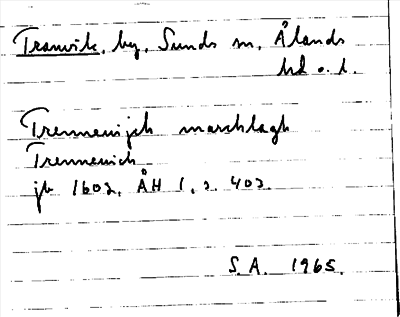 Tranvik, by, Sunds sn, Ålands
hd o. l.
Trennewijch marcklagh
Trennewich
jb 1602, ÅH 1, s. 402.
S.A. 1965.